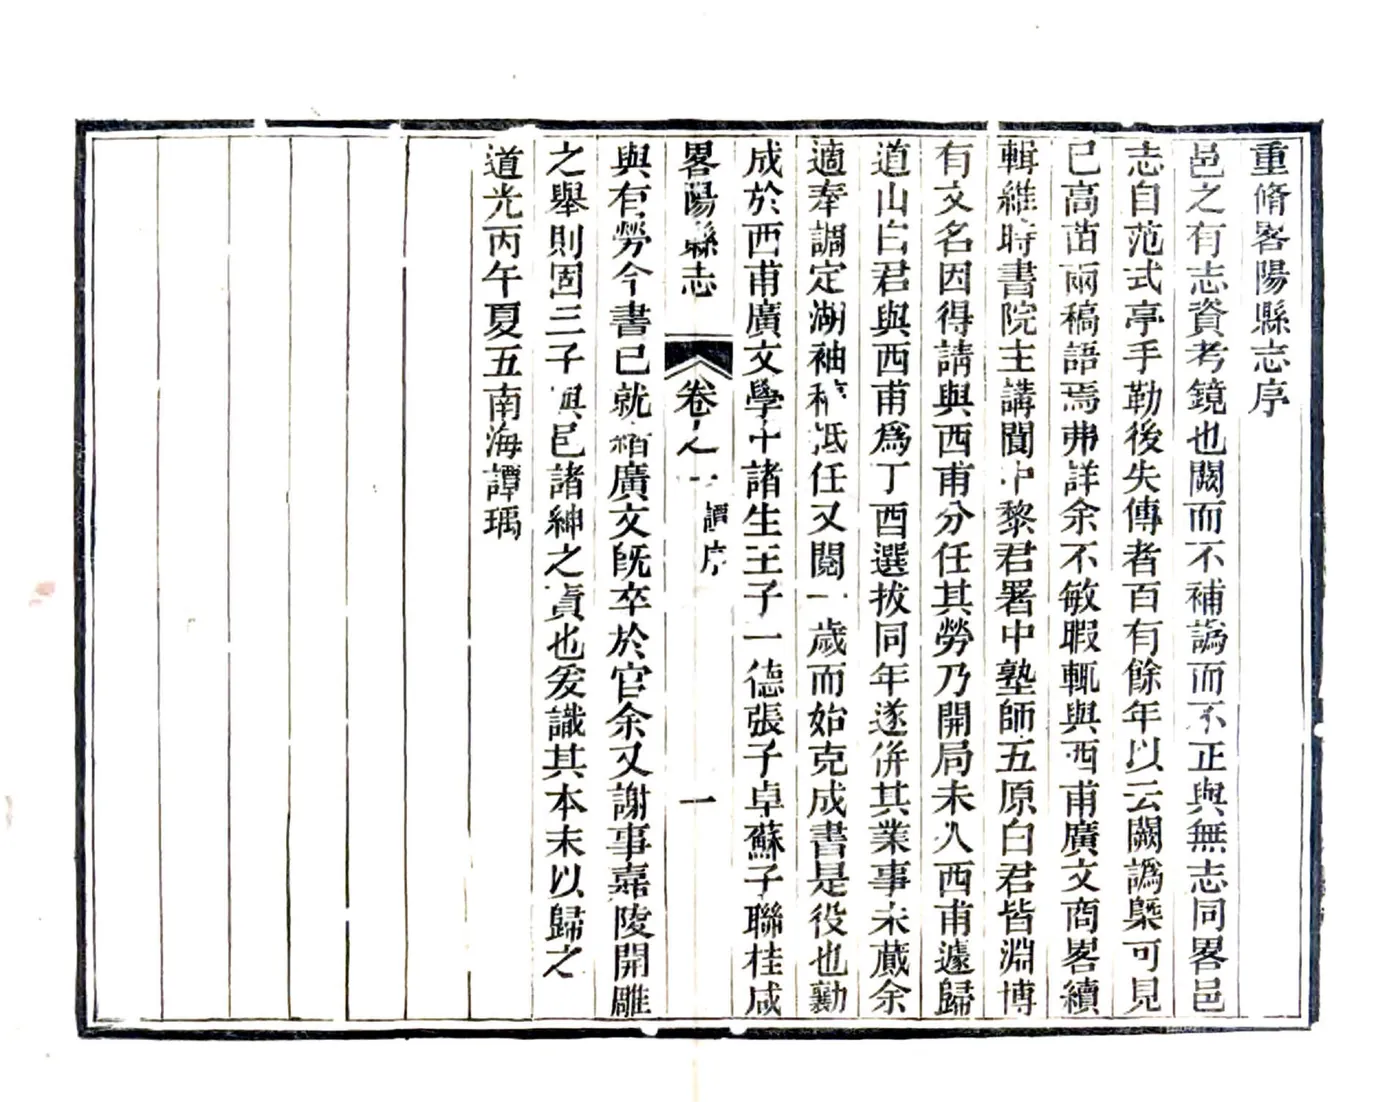 重脩畧陽縣志序
邑之有志資考鏡也闕而不補譌而不正與無志同畧邑
志自范式亭手勒後失傳者百有餘年以云闕譌槩可見
已高苗兩稿語焉弗詳余不敏暇輒與西甫廣文商畧續
輯維時書院主講閬中黎君署中塾師五原白君皆淵博
有文名因得請與西甫分任其勞乃開局未久西甫遽歸
道山白君與西甫爲丁酉選拔同年遂倂其業事未蕆余
適奉調定湖袖稿抵任又閱一歲而始克成書是役也勷
成於西甫廣文學中諸生王子一德張子卓蘇子聯桂咸
畧陽縣志 卷之一 譚序 一
與有勞今書已就緒廣文旣卒於官余又謝事嘉陵開雕
之舉則固三子與邑諸紳之責也爰識其本末以歸之
道光丙午夏五南海譚瑀